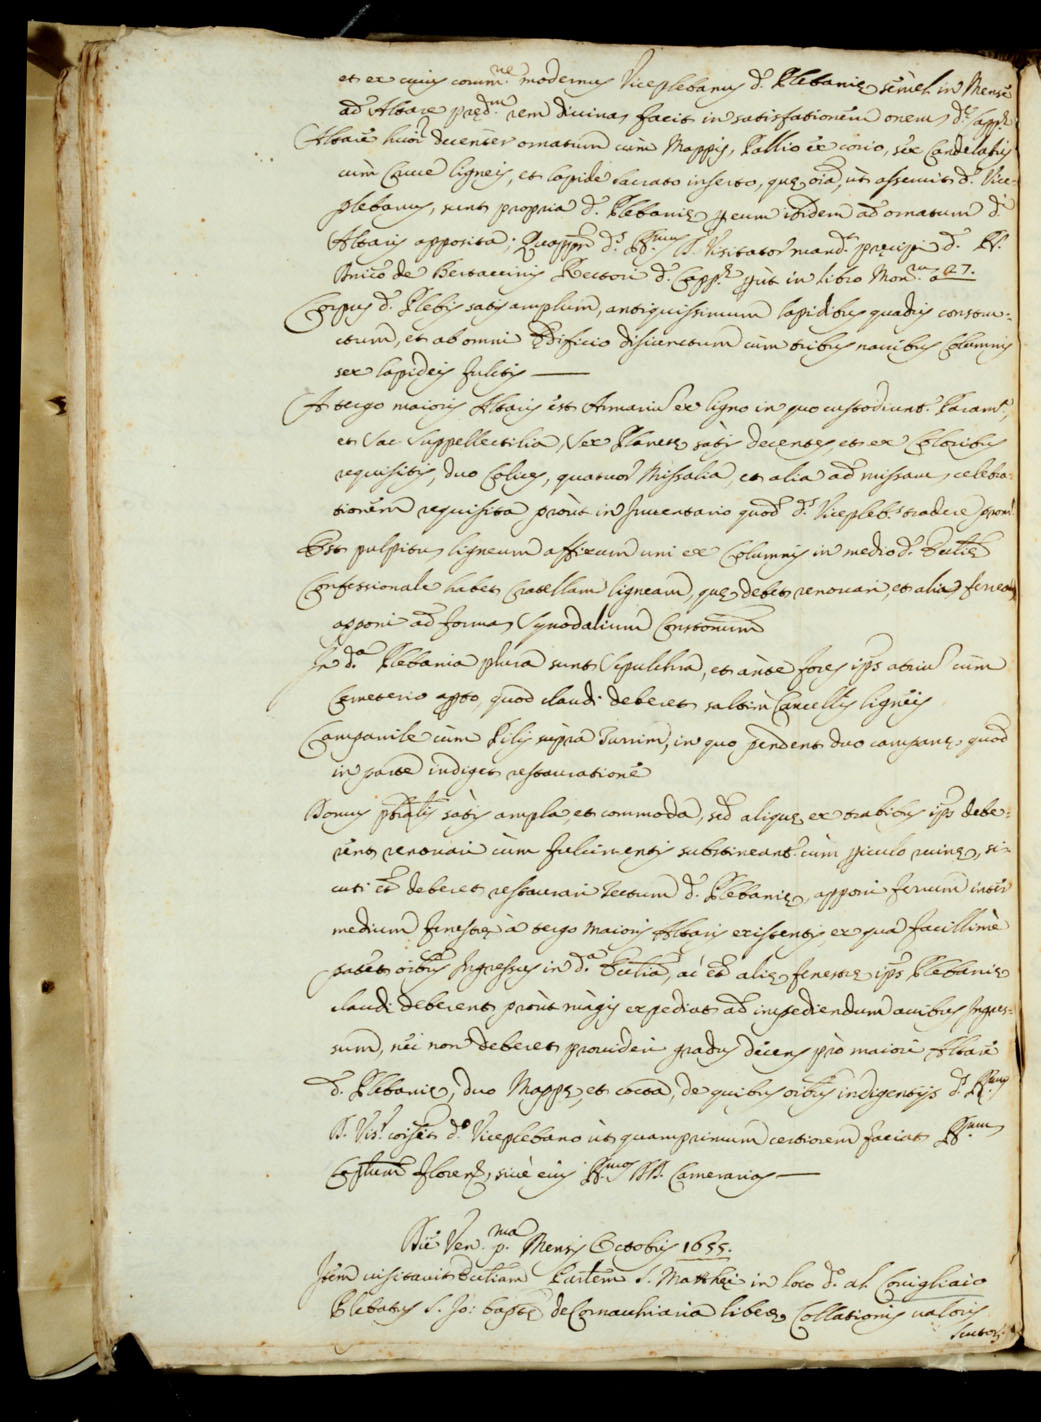 et ex cuius comm.ne modernus Viceplebanus d. Plebanię semel in Mense
ad Altare pręd.m rem divinam facit in satisfationem oneris d. Capp.ę
Altare decenter ornatum cum Mappis, Pallio ex corio, sex Candelabris
cum Cruce ligneis, et lapide sacrato inserto, quę oīa, ut asseruit d. Vice-
plebanus, sunt propria d. Plebanię p eum ibidem ad ornatum d.
Altaris apposita; d. D. Visitator mand. d.
de Bertaccinis Rectori d. Capp.ę put in libro a 27.
Corpus d. Plebis satis amplum, antiquissimum lapidibus quadris constru-
ctum, et ab omni Edificio disiunctum cum tribus navibus Columnis
sex lapideis fultis
A tergo maioris Altaris est Armariu ex ligno in quo custodiunt. Param.
et Sac. Suppellectilia, sex Planetę satis decentes, et ex Coloribus
requisitis, duo Calices, quatuor Missalia, et alia ad missam celebra-
tionem requisita prout in Inventario quod d. Vicepleb.s tradere prom.
Est pulpitus ligneum affixum uni ex Columnis in medio d. Ecclię
Confessionale habet Cratellam ligneam, quę debet renovari, et alia ferrea
apponi ad formas Synodalium Constonum
In d.a Plebania plura sunt Sepulchra, et ante fores ips atriu cum
Cemeterio apto, quod claudi deberet saltim Cancellis ligneis
Campanile cum Pilis supra Turrim, in quo pendent duo campanę quod
in parte indiget restauratione
Domus satis ampla, et commoda, sed aliquę ex trabibus ips debe-
rent renovari cum fulcimentis substineant. cum piculo ruinę, si-
cuti et deberet restaurari tectum d. Plebanię, apponi ferrum inter
medium fenestrę à tergo maioris Altaris existentis ex qua facillimè
patet oibus Ingressus in d.a Ecclia, ac et alię fenestrę ips Plebanię
claudi deberent prout magis expediat ad impediendum avibus Ingres-
sum, nec non deberet provideri gradus decens pro maiori Altare
d. Plebanię, duo Mappę, et cotta, de quibus oibus indigentijs d.
D. Vis. d.o Viceplebano ut quamprimum certiorem faciat
Caplum Floren., sive eius DD. Camerarios
Die Ven. p.ma Mensis Octobris 1655.
Item visitavit Ecclíam S. Matthęi in loco d.o al Covigliaio
Plebatus S. Jo: bapte de Cornacchiaia liberę Collationis valoris
scutor.